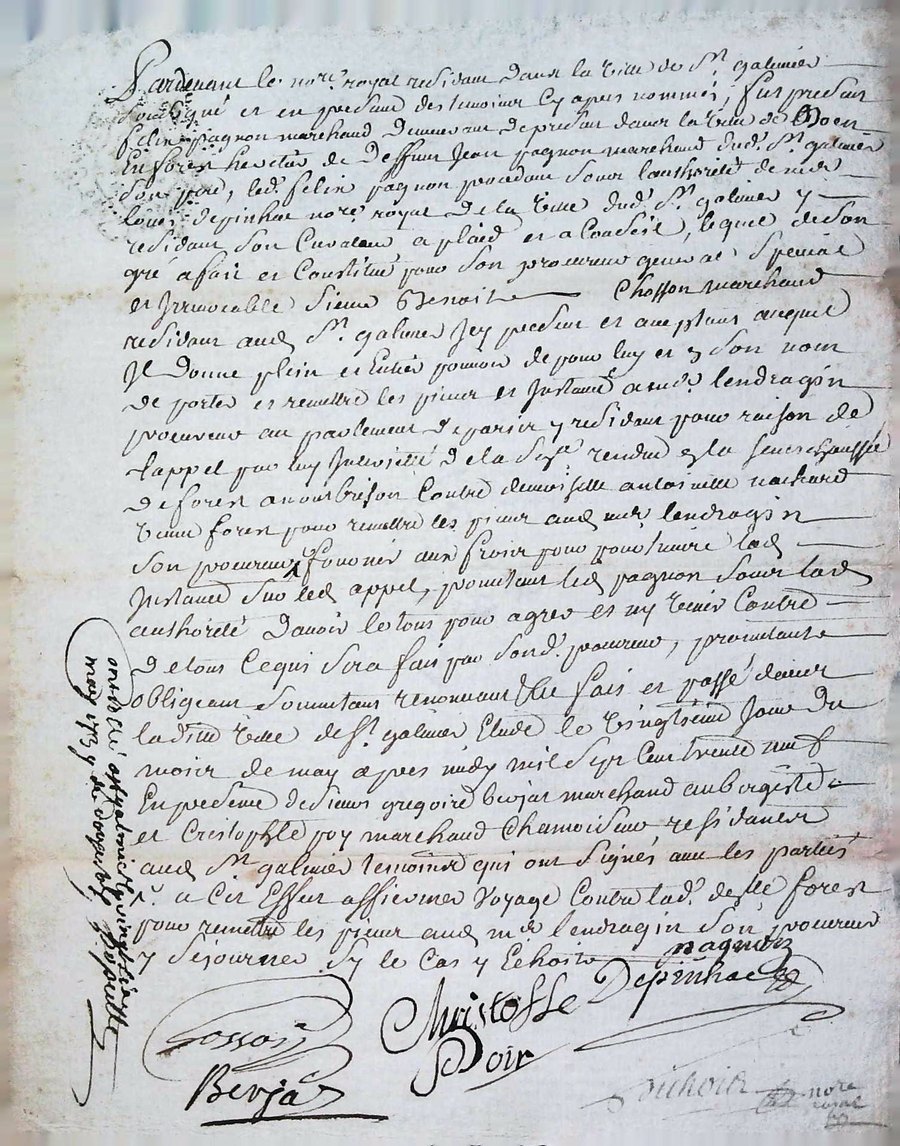 Pardevant le nore royal residant dans la ville de St galmier
soubsigné et en presence des temoins cy apres nommés, fut present
felix pagnon marchand demeurant de present dans la ville de Boen
En forest heritier de deffunt Jean pagnon marchand dudt St galmier
son pere, led. felix pagnon procedant sous l'authorité de me
Louis depinhac nore royal de la ville dudt St galmier y
residant son Curateur a plaid et a Conseil, lequel de son
gré a fait et Constitué pour son procureur general special
et Irrevocable sieur Benoit Chosson marchand
residant aud St galmier Jcy present et aceptant auquel
Jl donne plein et Entier pouvoir de pour luy et en son nom
de porter et remettre les pieces et Instance a me lendragin
procureur au parlement de paris y residant pour raison de
l'appel par luy Interjetté de la sent rendue en la senechaussée
de forest a montbrison Contre demoiselle antoinette
veuve forest pour remettre les pieces aud me lendragin
son procureur, fournir aux frois pour poursuivre lad
Instance sur led appel, promettant led pagnon sous lad
authorité d'avoir le tout pour agreé et ny venir Contre
de tout Ce qui sera fait par sond. procureur, promettant
obligeant soumettant renonceant &c fait et passé dans
ladite ville de St galmier Etude le vingtieme Jour du
mois de may apres midy mil sept Cent trente neuf
En presence de sieurs gregoire berjat marchand aubergiste
et Cristophle poy marchand Chamoiseur residants
aud St galmier temoins qui ont signés avec les parties
a Cet Effet affirmer voyage Contre lad. delle forest
pour remettre les pieces aud me lendragin son procureur
y sejourner sy le Cas y Echoit
pagnon
Chosson
Christoffle
Poix
Depinhac
Berjat
nore
royal
may 1739